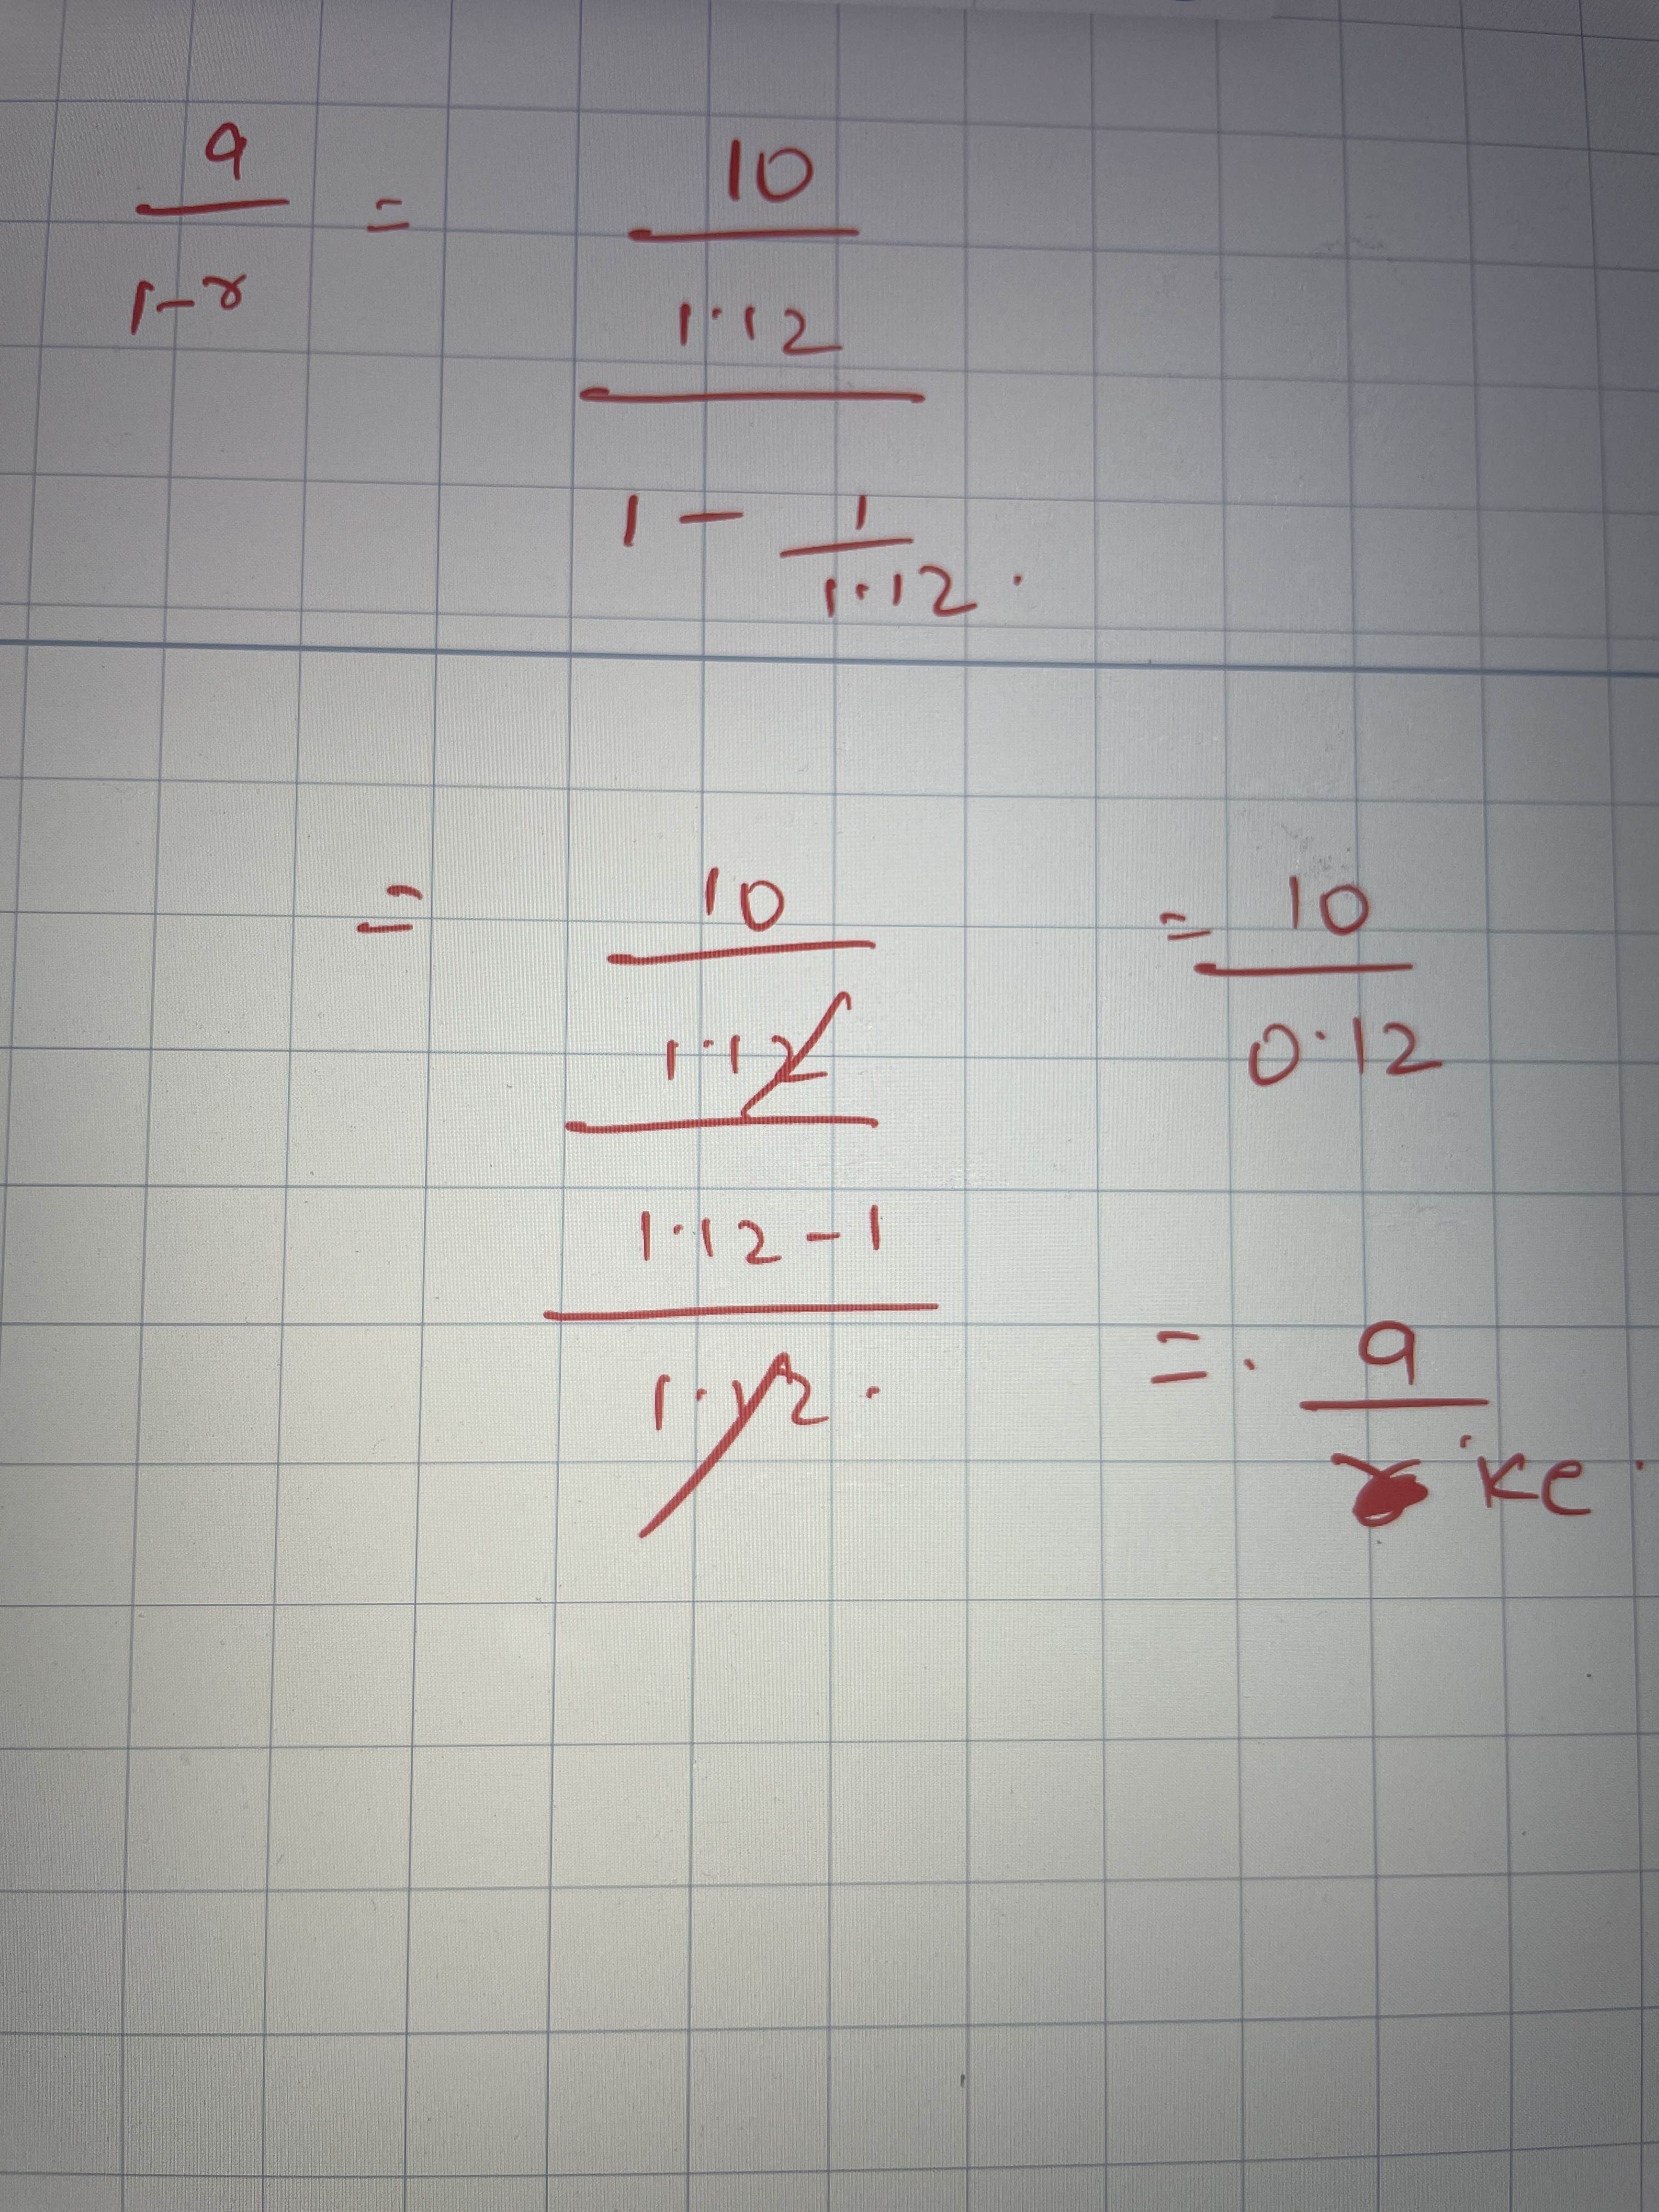 a/(1-r) = (10/1.12)/(1 - 1/1.12).
= (10/1.12)/((1.12-1)/1.12.) = 10/0.12
=. a/ ke